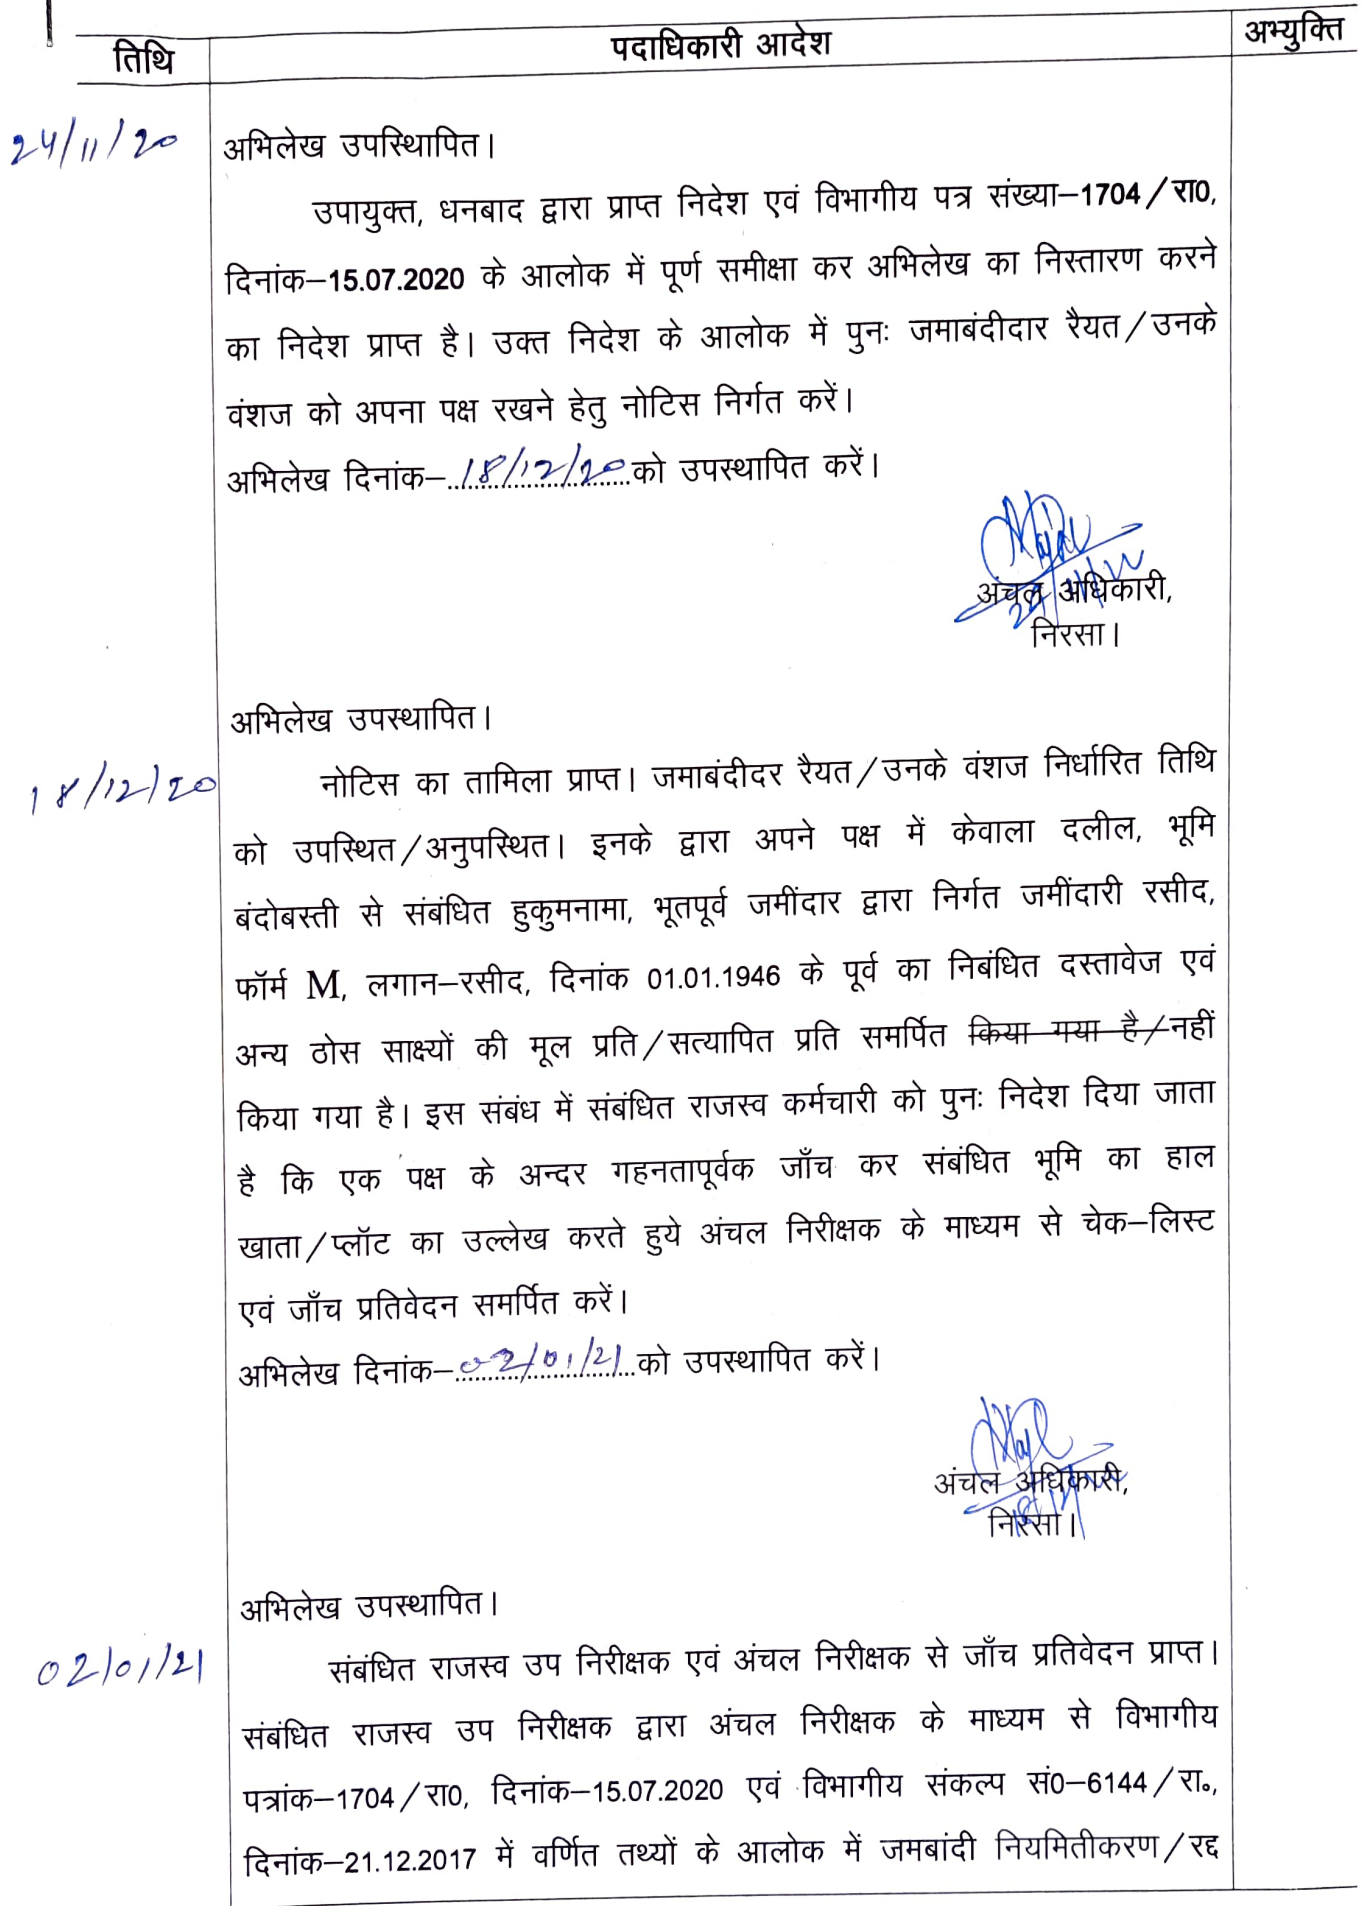 तिथि पदाधिकारी आदेश अभ्युक्ति
24/11/20 अभिलेख उपस्थिापित।
उपायुक्त, धनबाद द्वारा प्राप्त निदेश एवं विभागीय पत्र संख्या–1704/रा0,
दिनांक–15.07.2020 के आलोक में पूर्ण समीक्षा कर अभिलेख का निस्तारण करने
का निदेश प्राप्त है। उक्त निदेश के आलोक में पुनः जमाबंदीदार रैयत/उनके
वंशज को अपना पक्ष रखने हेतु नोटिस निर्गत करें।
अभिलेख दिनांक–18/12/20 को उपस्थापित करें।
अंचल अधिकारी,
निरसा।
अभिलेख उपस्थापित।
18/12/20 नोटिस का तामिला प्राप्त। जमाबंदीदर रैयत/उनके वंशज निर्धारित तिथि
को उपस्थित/अनुपस्थित। इनके द्वारा अपने पक्ष में केवाला दलील, भूमि
बंदोबस्ती से संबंधित हुकुमनामा, भूतपूर्व जमींदार द्वारा निर्गत जमींदारी रसीद,
फॉर्म M, लगान–रसीद, दिनांक 01.01.1946 के पूर्व का निबंधित दस्तावेज एवं
अन्य ठोस साक्ष्यों की मूल प्रति/सत्यापित प्रति समर्पित किया गया है/नहीं
किया गया है। इस संबंध में संबंधित राजस्व कर्मचारी को पुनः निदेश दिया जाता
है कि एक पक्ष के अन्दर गहनतापूर्वक जाँच कर संबंधित भूमि का हाल
खाता/प्लॉट का उल्लेख करते हुये अंचल निरीक्षक के माध्यम से चेक–लिस्ट
एवं जाँच प्रतिवेदन समर्पित करें।
अभिलेख दिनांक–02/01/21 को उपस्थापित करें।
अंचल अधिकारी,
निरसा।
अभिलेख उपस्थापित।
02/01/21 संबंधित राजस्व उप निरीक्षक एवं अंचल निरीक्षक से जाँच प्रतिवेदन प्राप्त।
संबंधित राजस्व उप निरीक्षक द्वारा अंचल निरीक्षक के माध्यम से विभागीय
पत्रांक–1704/रा0, दिनांक–15.07.2020 एवं विभागीय संकल्प सं0–6144/रा०,
दिनांक–21.12.2017 में वर्णित तथ्यों के आलोक में जमबांदी नियमितीकरण/रद्द